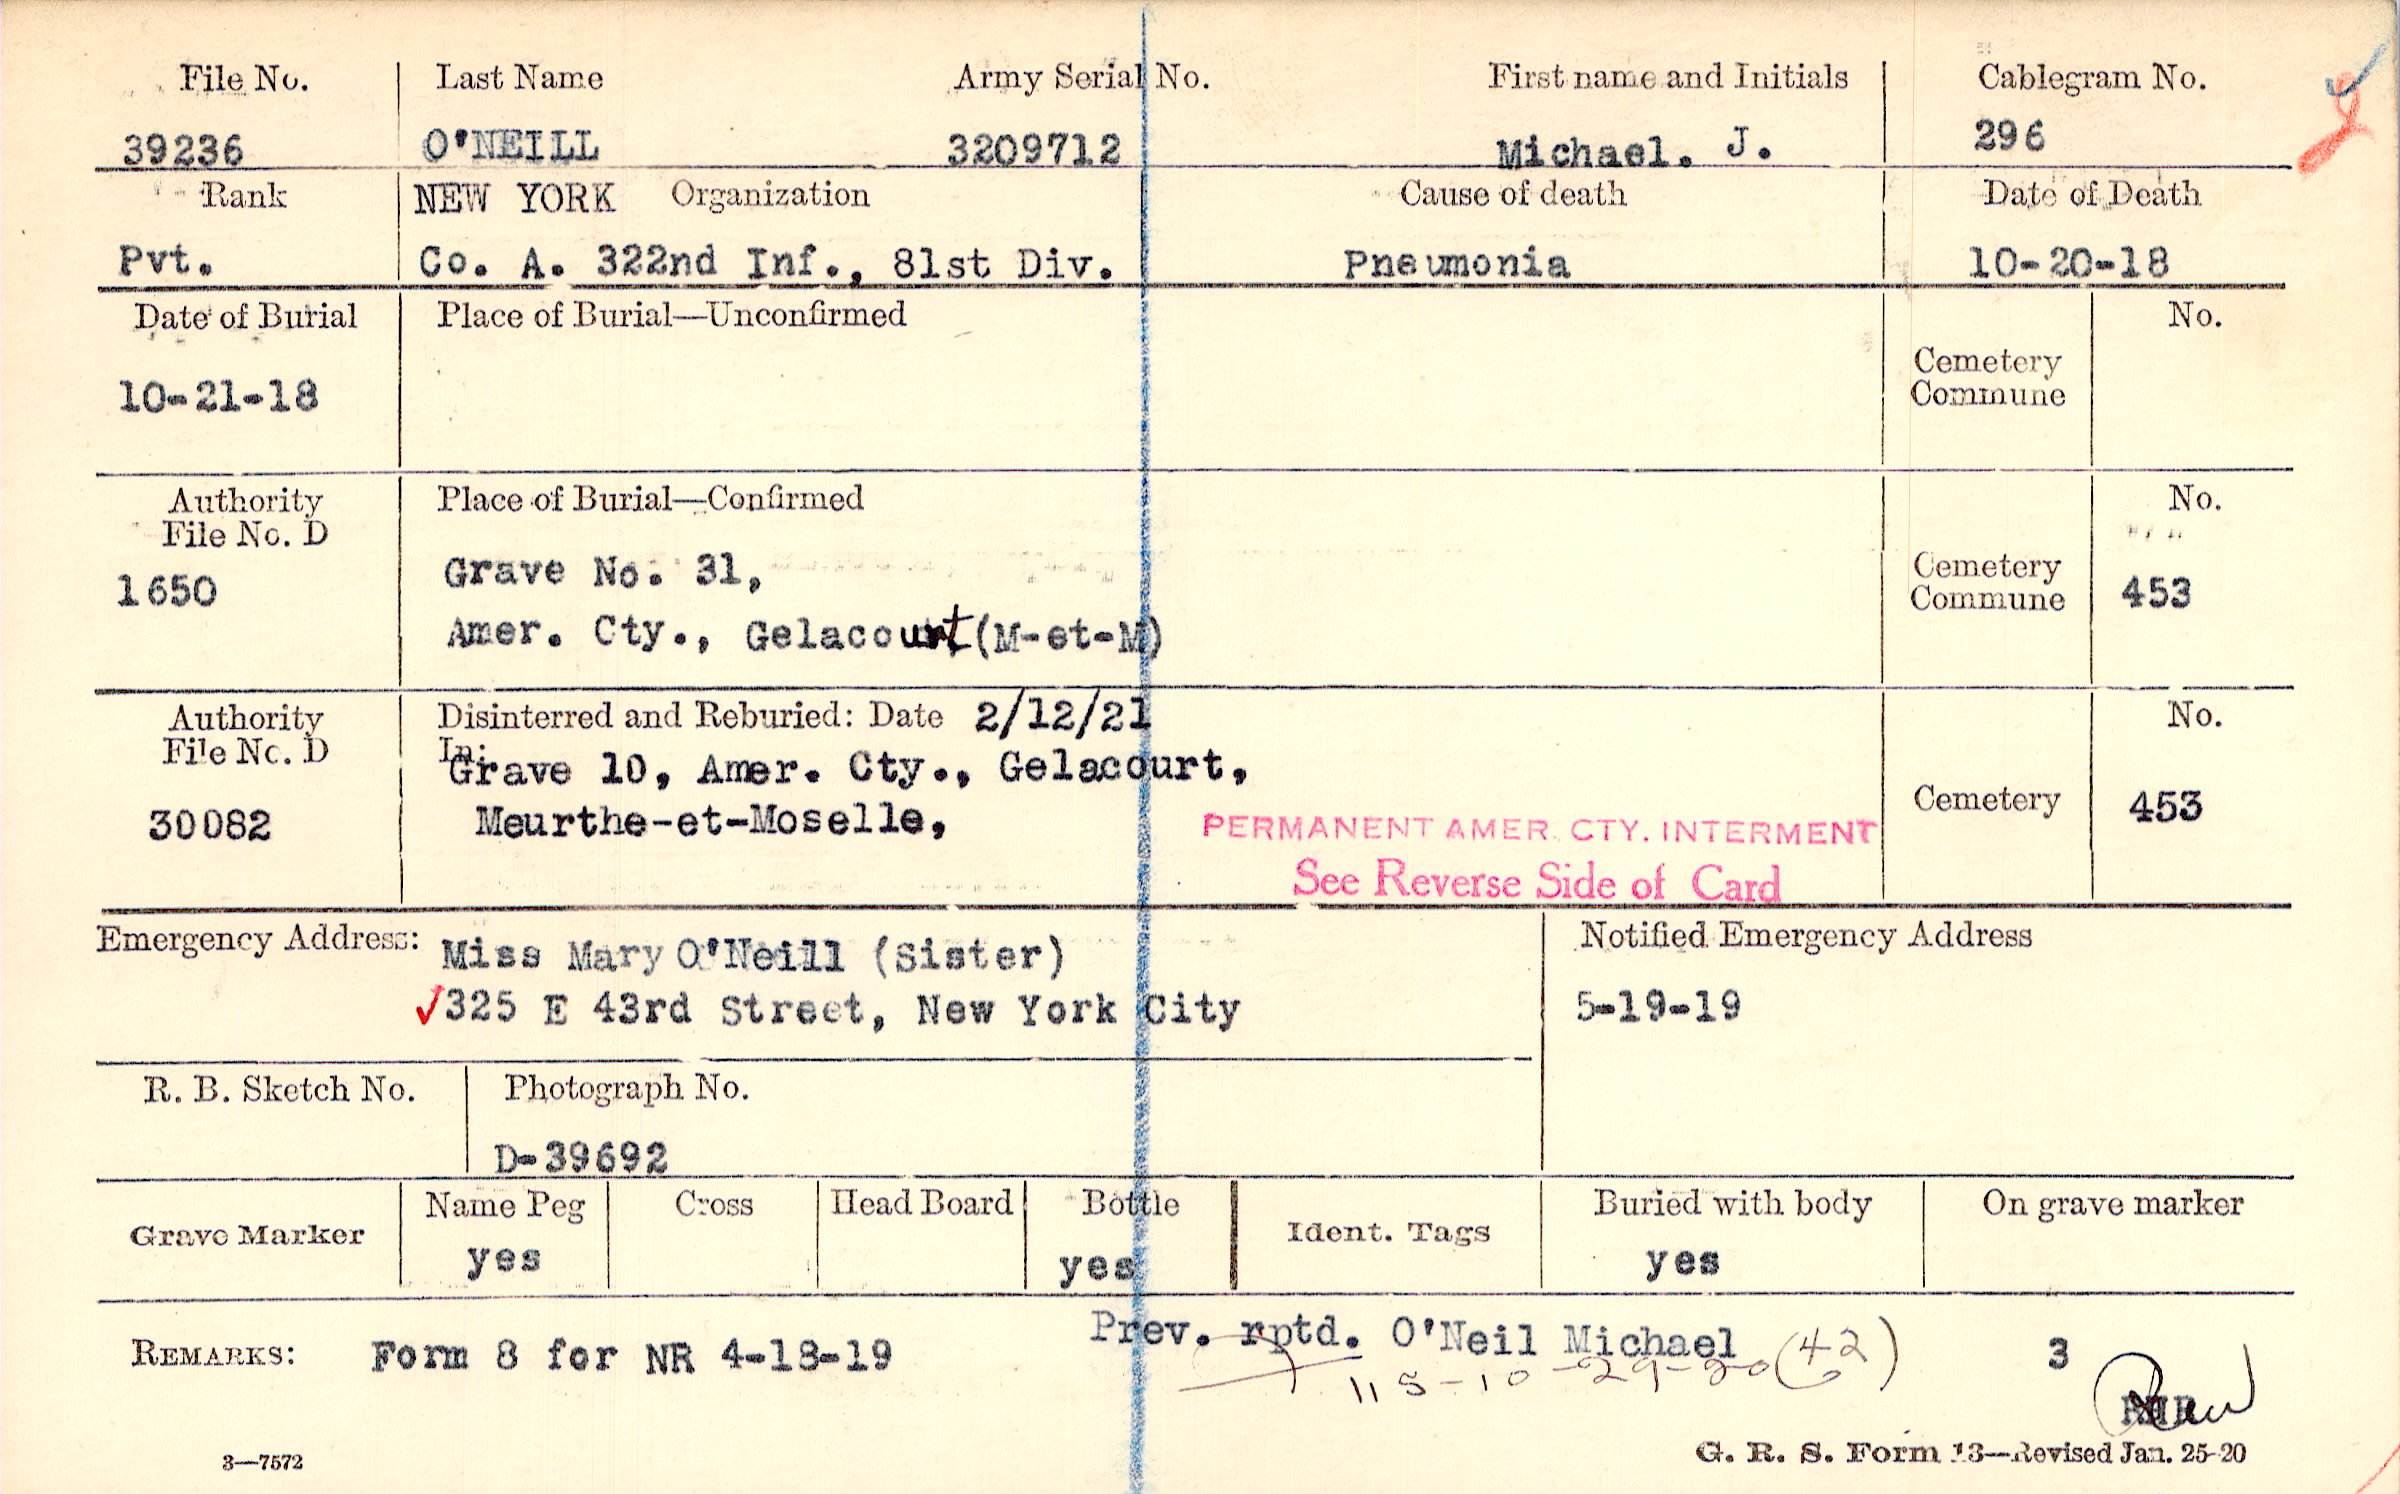 File No. Last Name Army Serial No. First name and Initials Cablegram No.
39236 O'NEILL 3209712 Michael. J. 296
Rank NEW YORK Organization Cause of death Date of Death
Pvt. Co. A. 322nd Inf., 81st Div. Pneumonia 10-20-18
Date of Burial Place of Burial—Unconfirmed No.
Cemetery
Commune
10-21-18
Authority Place of Burial—Confirmed No.
File No. D
1650 Grave No. 31, Cemetery
Commune 453
Amer. Cty., Gelacourt (M-et-M)
Authority Disinterred and Reburied: Date 2/12/21 No.
File No. D In:
Grave 10, Amer. Cty., Gelacourt,
30082 Meurthe-et-Moselle, Cemetery 453
PERMANENT AMER. CTY. INTERMENT
See Reverse Side of Card
Emergency Address: Miss Mary O'Neill (Sister) Notified Emergency Address
325 E 43rd Street, New York City 5-19-19
R. B. Sketch No. Photograph No.
D-39692
Grave Marker Name Peg Cross Head Board Bottle Ident. Tags Buried with body On grave marker
yes yes yes
Prev. rptd. O'Neil Michael
REMARKS: Form 8 for NR 4-18-19 3
115-10-29-20 (42)
3—7572 G. R. S. Form 13—Revised Jan. 25-20